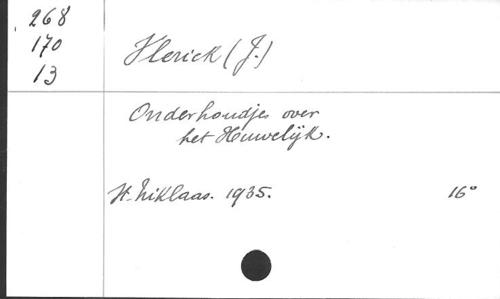 268
170
13
Vlerick (J.)
Onderhoudjes over
het Huwelijk.
St-Niklaas. 1935. 16°